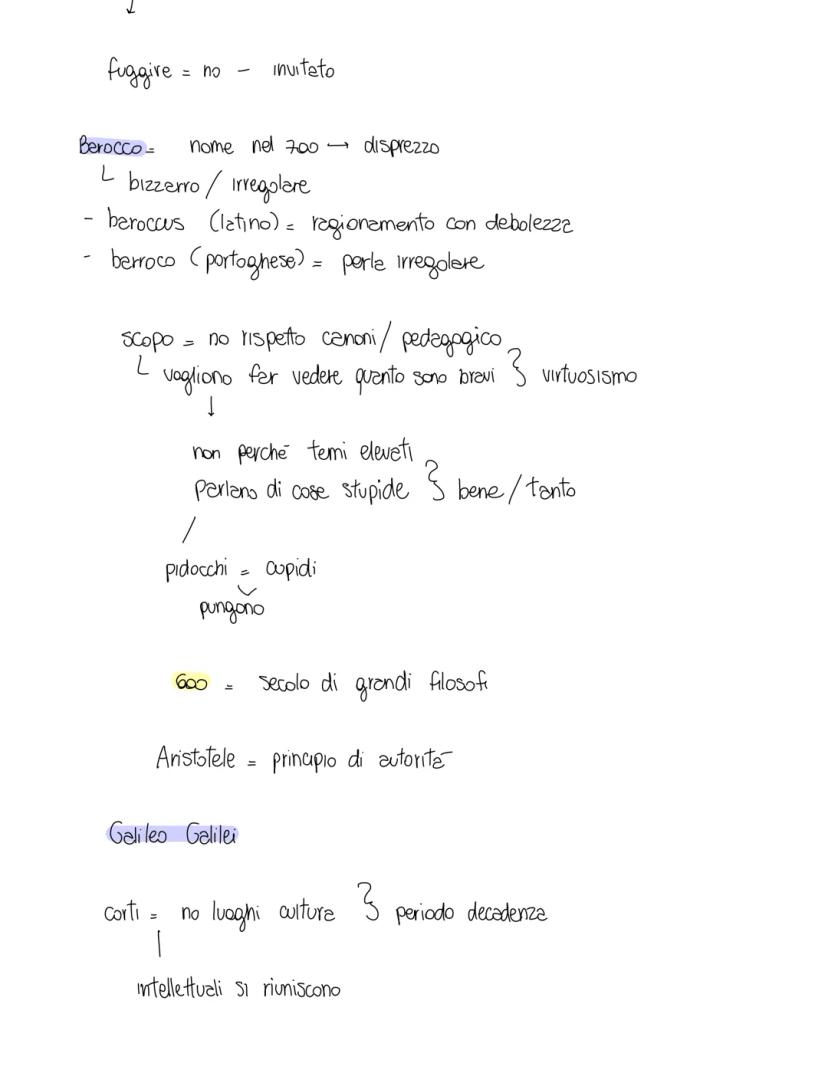 ↓
fuggire = no - invitato
Barocco = nome nel 700 → disprezzo
└ bizzarro / irregolare
- baroccus (latino) = ragionamento con debolezza
- barroco (portoghese) = perla irregolare
scopo = no rispetto canoni / pedagogico
└ vogliono far vedere quanto sono bravi } virtuosismo
↓
non perché temi elevati
parlano di cose stupide } bene / tanto
/
pidocchi = cupidi
pungono
600 = secolo di grandi filosofi
Aristotele = principio di autorità
Galileo Galilei
corti = no luoghi cultura } periodo decadenza
|
intellettuali si riuniscono